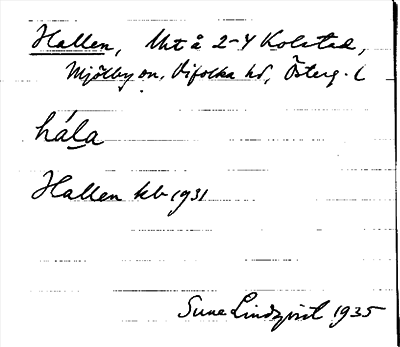 Hallen, Mtå 2-4 Kolstad,
Mjölby sn, Vifolka hd, Österg. l
hála
Hallen kb 1931
Sune Lindqvist 1935